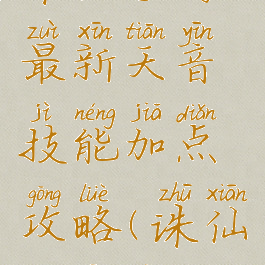 zuì xīn tiān yīn
最新天音
jì néng jiā diǎn
技能加点
gōng lüè zhū xiān
攻略(诛仙